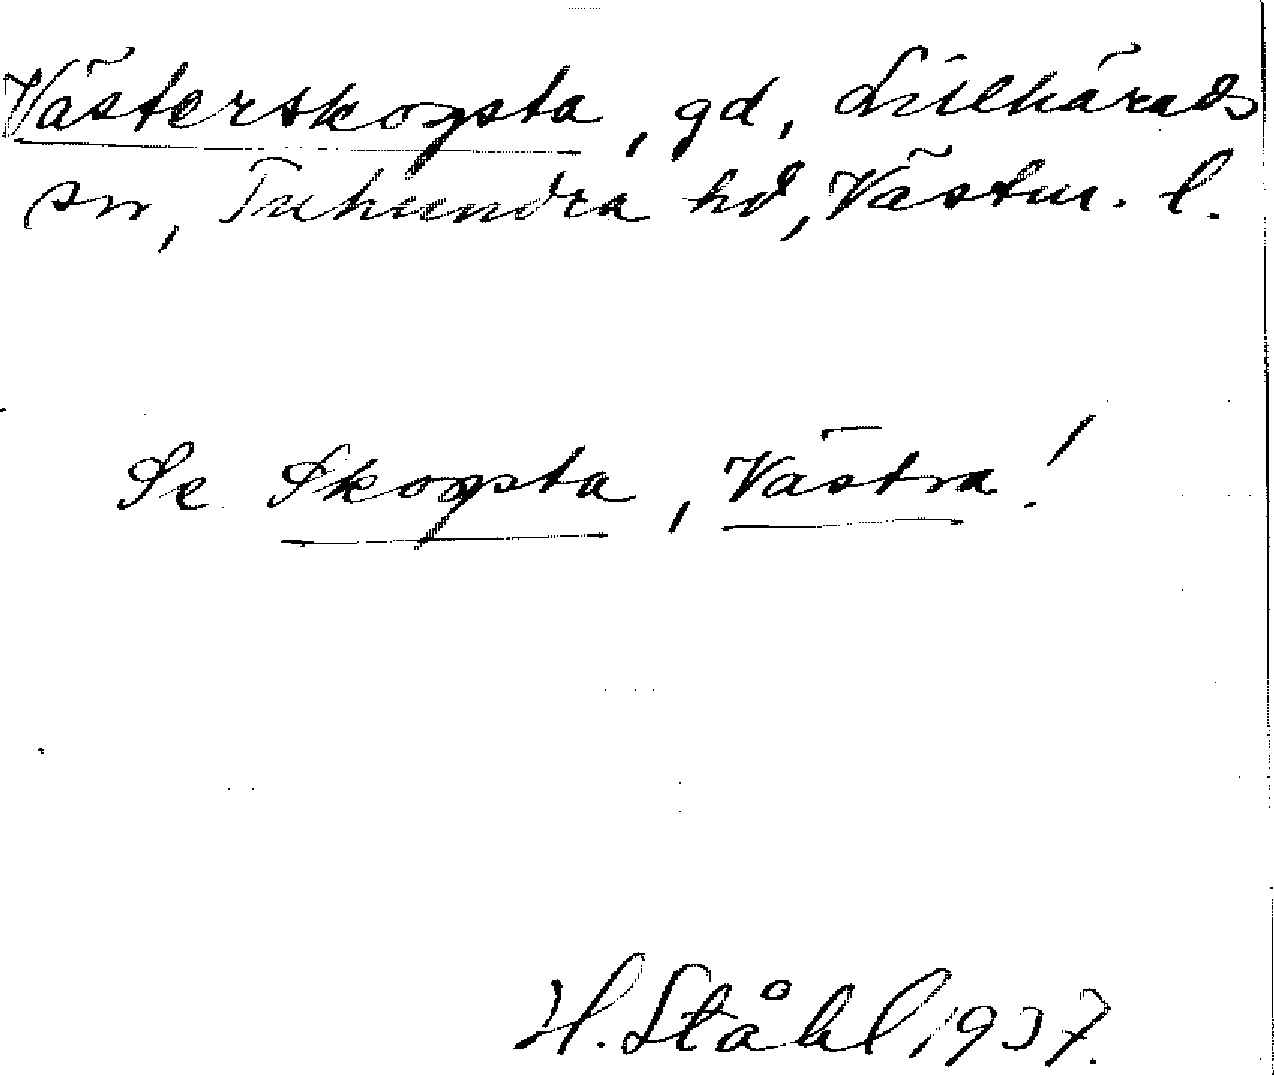 Västerskogsta, gd, Lillhärads
sn, Tuhundra hd, Västm. l.
Se Skogsta, Västra!
H. Ståhl, 1937.